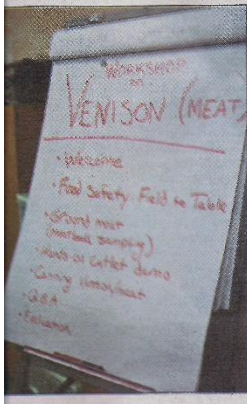 WORKSHOP
on
VENISON (MEAT)
• Welcome
• Food Safety: Field to Table
• Ground meat
(meatball sampling)
• Hands-on cutlet demo
• Canning venison/meat
• Q&A
• Evaluation